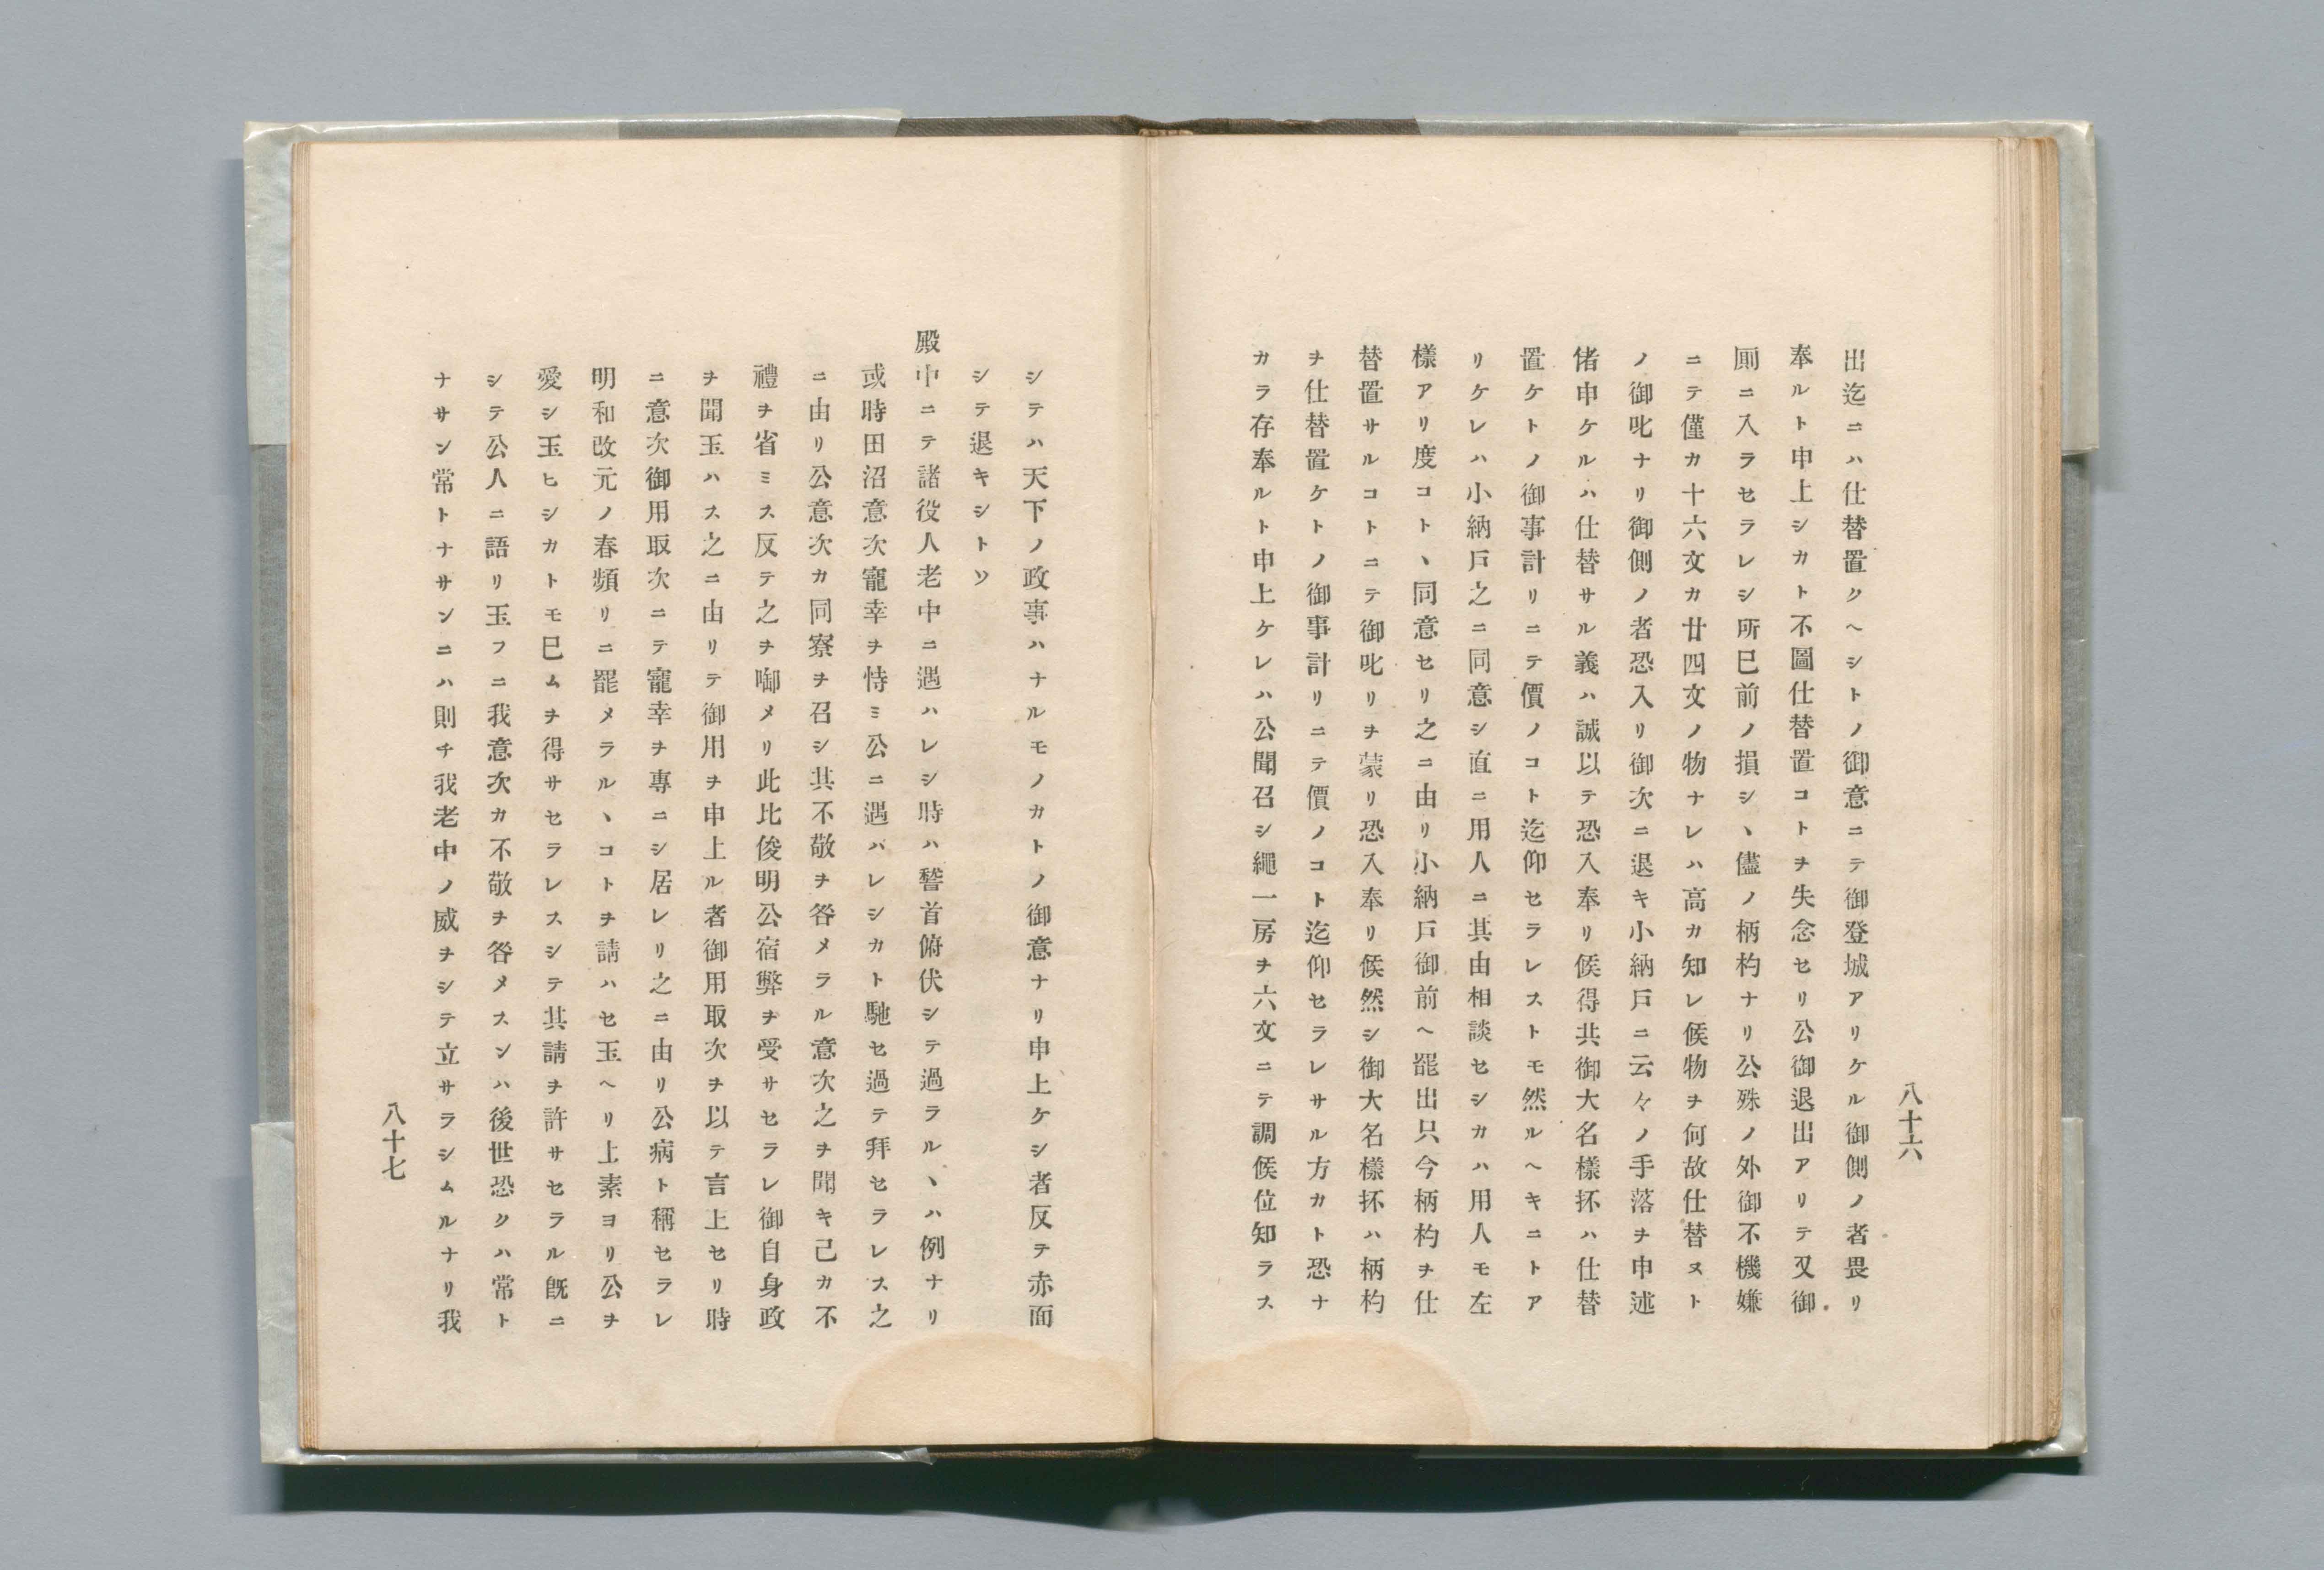 八十六
出迄ニハ仕替置クヘシトノ御意ニテ御登城アリケル御側ノ者畏リ
奉ルト申上シカト不圖仕替置コトヲ失念セリ公御退出アリテ又御
厠ニ入ラセラレシ所已前ノ損シヽ儘ノ柄杓ナリ公殊ノ外御不機嫌
ニテ僅カ十六文カ廿四文ノ物ナレハ高カ知レ候物ヲ何故仕替ヌト
ノ御叱ナリ御側ノ者恐入リ御次ニ退キ小納戸ニ云々ノ手落ヲ申述
偖申ケルハ仕替サル義ハ誠以テ恐入奉リ候得共御大名樣抔ハ仕替
置ケトノ御事計リニテ價ノコト迄仰セラレストモ然ルヘキニトア
リケレハ小納戸之ニ同意シ直ニ用人ニ其由相談セシカハ用人モ左
樣アリ度コトヽ同意セリ之ニ由リ小納戸御前ヘ罷出只今柄杓ヲ仕
替置サルコトニテ御叱リヲ蒙リ恐入奉リ候然シ御大名樣抔ハ柄杓
ヲ仕替置ケトノ御事計リニテ價ノコト迄仰セラレサル方カト恐ナ
カラ存奉ルト申上ケレハ公聞召シ繩一房ヲ六文ニテ調候位知ラス
シテハ天下ノ政事ハナルモノカトノ御意ナリ申上ケシ者反テ赤面
シテ退キシトソ
殿中ニテ諸役人老中ニ遇ハレシ時ハ稽首俯伏シテ過ラルヽハ例ナリ
或時田沼意次寵幸ヲ恃ミ公ニ遇ハレシカト馳セ過テ拜セラレス之
ニ由リ公意次カ同寮ヲ召シ其不敬ヲ咎メラル意次之ヲ聞キ己カ不
禮ヲ省ミス反テ之ヲ啣メリ此比俊明公宿弊ヲ受サセラレ御自身政
ヲ聞玉ハス之ニ由リテ御用ヲ申上ル者御用取次ヲ以テ言上セリ時
ニ意次御用取次ニテ寵幸ヲ專ニシ居レリ之ニ由リ公病ト稱セラレ
明和改元ノ春頻リニ罷メラルヽコトヲ請ハセ玉ヘリ上素ヨリ公ヲ
愛シ玉ヒシカトモ已ムヲ得サセラレスシテ其請ヲ許サセラル旣ニ
シテ公人ニ語リ玉フニ我意次カ不敬ヲ咎メスンハ後世恐クハ常ト
ナサン常トナサンニハ則チ我老中ノ威ヲシテ立サラシムルナリ我
八十七